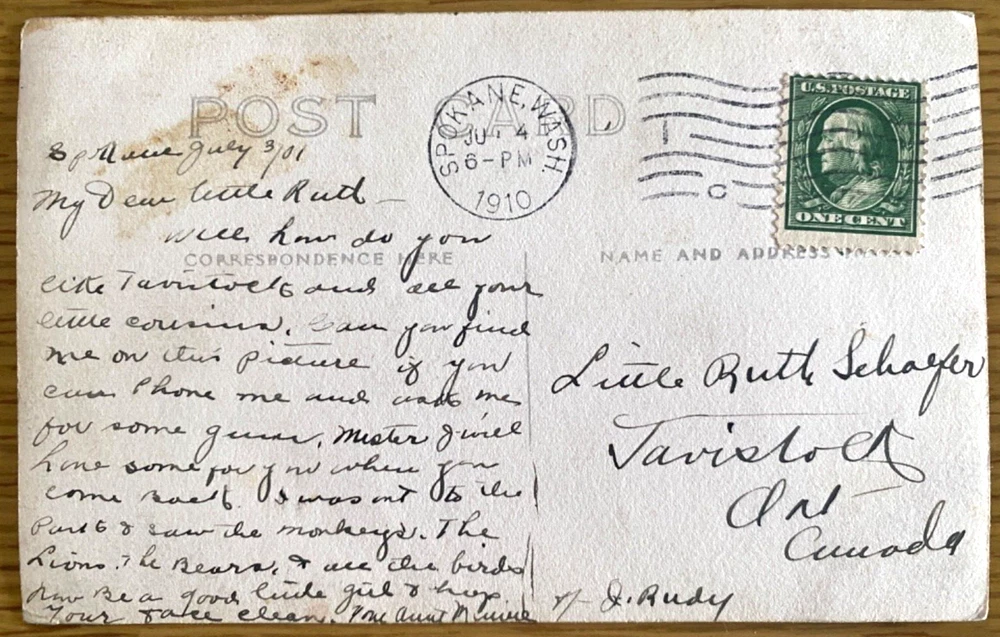 POST CARD
SPOKANE, WASH.
JUL 4
6-PM
1910
U.S. POSTAGE
ONE CENT
Spokane July 3/01
My Dear little Ruth —
Well how do you
CORRESPONDENCE HERE
NAME AND ADDRESS HERE
like Tavistock and all your
little cousins. Can you find
me on this picture if you
can Phone me and ask me
for some gum, Mister I will
have some for you when you
come back. I was out to the
Park & saw the monkeys. The
Lions. The Bears, & all the birds
now Be a good little girl & keep
Your face clean. Your Aunt
Little Ruth Schaefer
Tavistock
Ont
Canada
c/o J. Rudy